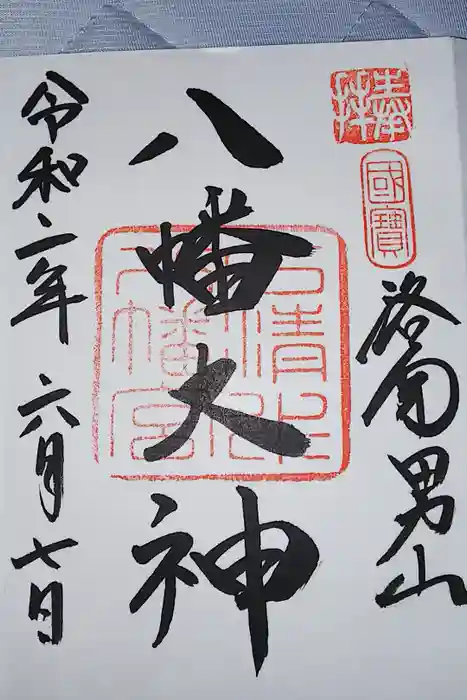 奉拝
國寶
洛南男山
八幡大神
石清水八幡宮
令和二年 六月七日